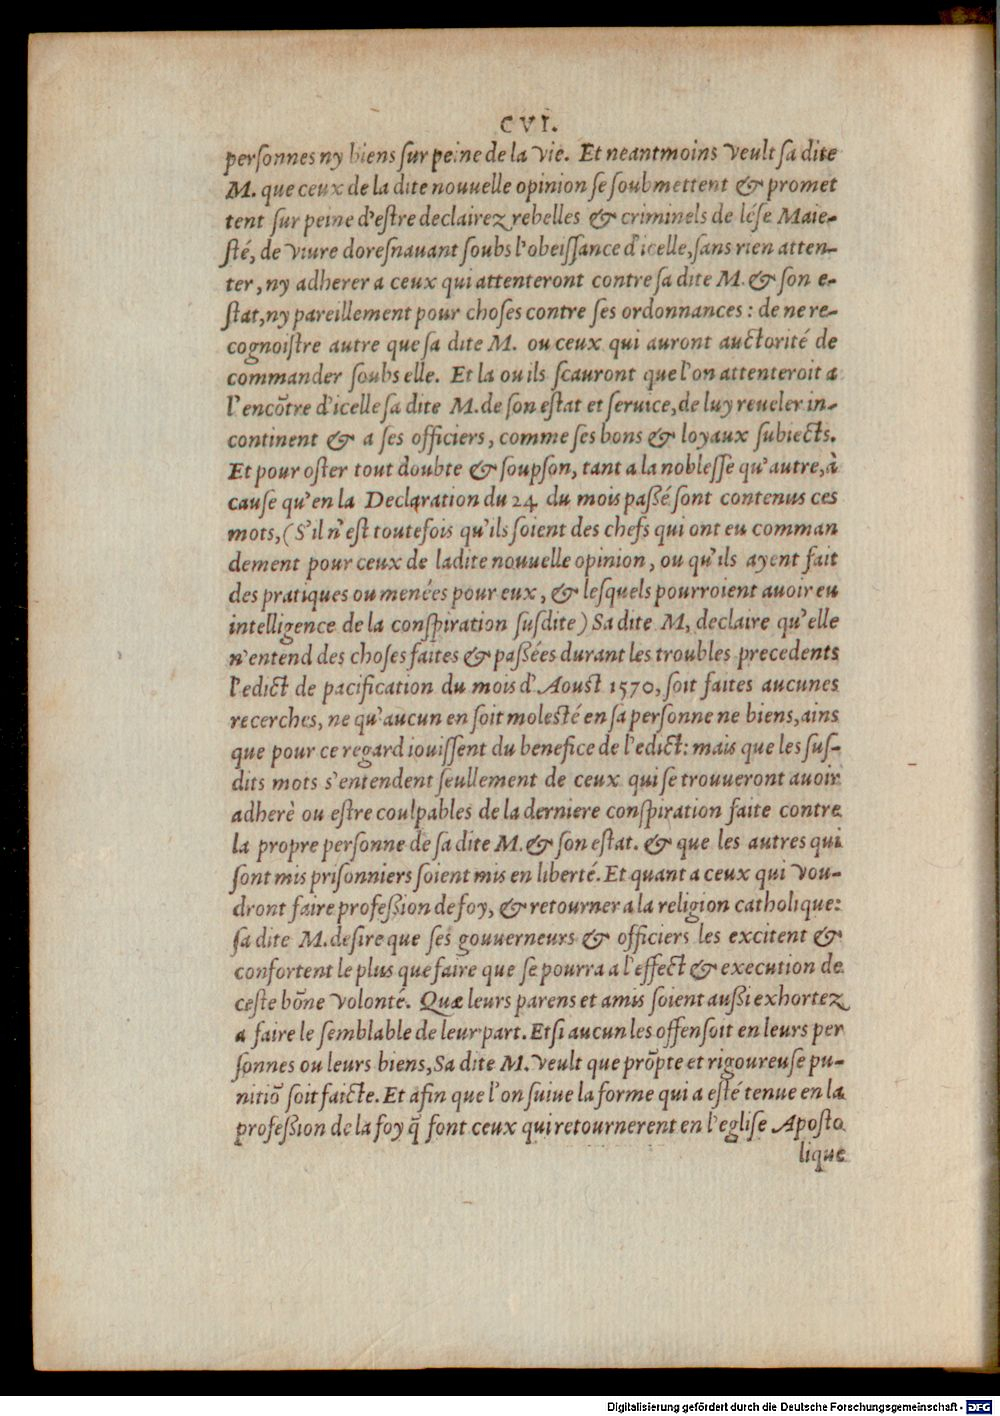 CVI.
personnes ny biens sur peine de la vie. Et neantmoins veult sa dite
M. que ceux de la dite nouuelle opinion se soubmettent & promet
tent sur peine d'estre declairez rebelles & criminels de lése Maie-
sté, de viure doresnauant soubs l'obeissance d'icelle, sans rien atten-
ter, ny adherer a ceux qui attenteront contre sa dite M. & son e-
stat, ny pareillement pour choses contre ses ordonnances : de ne re-
cognoistre autre que sa dite M. ou ceux qui auront auctorité de
commander soubs elle. Et la ou ils scauront que l'on attenteroit a
l'encōtre d'icelle sa dite M. de son estat et seruice, de luy reueler in-
continent & a ses officiers, comme ses bons & loyaux subiects.
Et pour oster tout doubte & soupson, tant a la noblesse qu'autre, à
cause qu'en la Declaration du 24 du mois passé sont contenus ces
mots, (S'il n'est toutefois qu'ils soient des chefs qui ont eu comman
dement pour ceux de ladite nouuelle opinion, ou qu'ils ayent fait
des pratiques ou menées pour eux, & lesquels pourroient auoir eu
intelligence de la conspiration susdite) Sa dite M, declaire qu'elle
n'entend des choses faites & passées durant les troubles precedents
l'edict de pacification du mois d'Aoust 1570, soit faites aucunes
recerches, ne qu'aucun en soit molesté en sa personne ne biens, ains
que pour ce regard iouissent du benefice de l'edict: mais que les sus-
dits mots s'entendent seullement de ceux qui se trouueront auoir
adherè ou estre coulpables de la derniere conspiration faite contre
la propre personne de sa dite M. & son estat. & que les autres qui
sont mis prisonniers soient mis en liberté. Et quant a ceux qui vou-
dront faire profession de foy, & retourner a la religion catholique:
sa dite M. desire que ses gouuerneurs & officiers les excitent &
confortent le plus que faire que se pourra a l'effect & execution de
ceste bōne volonté. Quæ leurs parens et amis soient aussi exhortez
a faire le semblable de leur part. Et si aucun les offensoit en leurs per
sonnes ou leurs biens, Sa dite M. veult que prōpte et rigoureuse pu-
nitiō soit faicte. Et afin que l'on suiue la forme qui a esté tenue en la
profession de la foy q̄ font ceux qui retournerent en l'eglise Aposto
lique
Digitalisierung gefördert durch die Deutsche Forschungsgemeinschaft - DFG